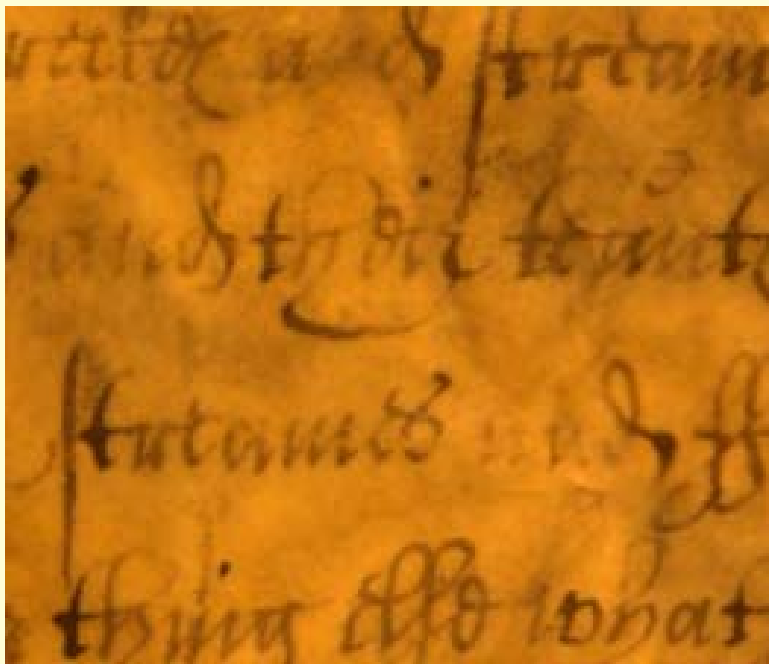 and stream
and their tennt
streames and ff
thing else what